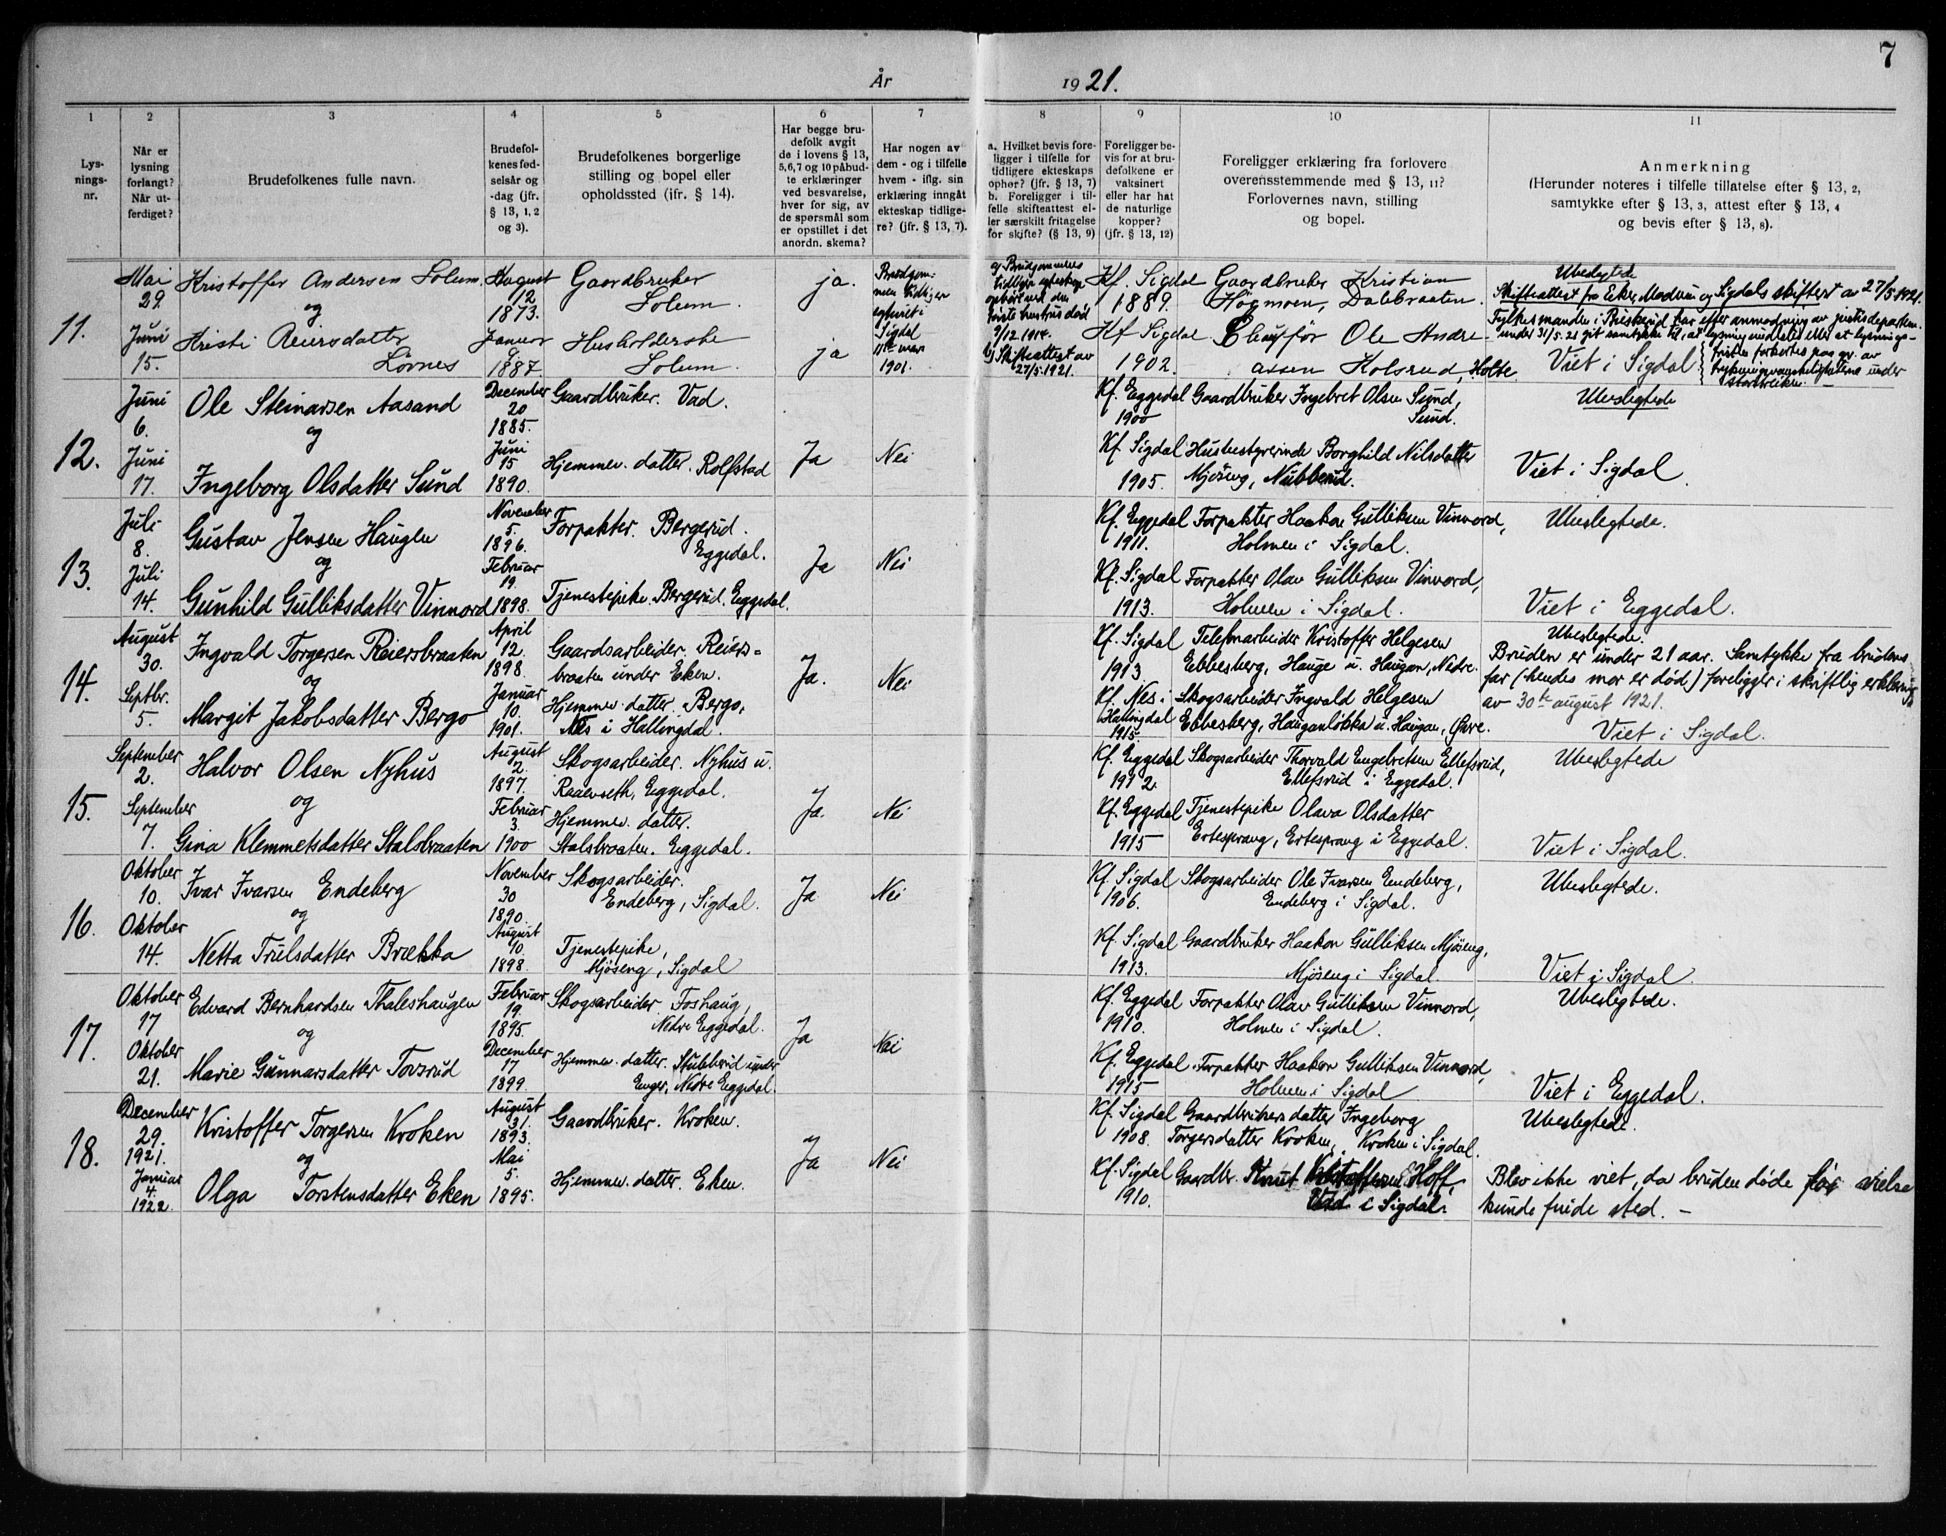 7
År 1921.
1
Lys-
nings-
nr.
2
Når er
lysning
forlangt?
Når ut-
ferdiget?
3
Brudefolkenes fulle navn.
4
Brudefol-
kenes fød-
selsår og
-dag (jfr.
§ 13, 1, 2
og 3).
5
Brudefolkenes borgerlige
stilling og bopel eller
opholdssted (ifr. § 14).
6
Har begge bru-
defolk avgit
de i lovens § 13,
5, 6, 7 og 10 påbud-
te erklæringer
ved besvarelse,
hver for sig, av
de spørsmål som
er opstillet i det
anordn. skema?
7
Har nogen av
dem - og i tilfelle
hvem - iflg. sin
erklæring inngått
ekteskap tidlige-
re? (jfr. § 13, 7).
8
a. Hvilket bevis fore-
ligger i tilfelle for
tidligere ekteskaps
ophør? (jfr. § 13, 7)
b. Foreligger i til-
felle skifteattest el-
ler særskilt fritagelse
for skifte? (§ 13, 9)
9
Foreligger be-
vis for at bru-
defolkene er
vaksinert
eller har hat
de naturlige
kopper?
(jfr. § 13, 12)
10
Foreligger erklæring fra forlovere
overensstemmende med § 13, 11?
Forlovernes navn, stilling
og bopel.
11
Anmerkning
(Herunder noteres i tilfelle tillatelse efter § 13, 2,
samtykke efter § 13, 3, attest efter § 13, 4
og bevis efter § 13, 8).
11.
Mai
29.
Juni
15.
Kristoffer Andersen Solum
og
Kristi Reiersdatter
Lörnes
August
12
1873.
Januar
1887
Gaardbruker
Solum.
Husholderske
Solum.
ja.
ja
Brudgom-
men tidliger
egteviet i
Sigdal
mai
1901.
a) Brudgommens
tidligere egteskap
ophørt ved den
første hustrus død
9/12 1914.
b) Skifteattest av
27/5 1921.
Kf. Sigdal
1889.
Kf Sigdal
1902.
Gaardbruker Kristian
Högmoen, Dalbraaten.
Chauffør Ole Andre
assen Kolsrud, Holte
Ubeslegtede
Skifteattest fra Eker, Modum og Sigdals skifteret av 27/5 1921.
Fylkesmanden i Buskerud har efter anmodning av justisdepartem.
under 31/5.21 git samtykke til, at lysning undlates eller at lysnings-
fristen forkortes paa gr. av
trykningsvanskelighetene under
storstreiken. -
Viet i Sigdal
12.
Juni
6.
Juni
17.
Ole Steinarsen Aasand
og
Ingeborg Olsdatter Sund
December
20
1885.
Juni
15
1890.
Gaardbruker. Vad.
Hjemmev. datter. Rolfstad
Ja
Nei
Kf. Eggedal
1900
Kf. Sigdal
1905.
Gaardbruker Ingebret Olsen Sund,
Sund.
Husbestyrerinde Borghild Nilsdatter
Mjöseng, Nubberud.
Ubeslegtede
Viet i Sigdal
13.
Juli
8.
Juli
14.
Gustav Jensen Haugen
og
Gunhild Gulliksdatter Vinnord
November
5.
1896.
Februar
19.
1898.
Forpakter. Bergerud.
Eggedal.
Tjenestepike. Bergerud. Eggedal.
Ja
Nei
Kf. Eggedal
1911.
Kf. Sigdal
1913.
Forpakter Haakon Gulliksen Vinnord,
Holmen i Sigdal.
Forpakter Olav Gulliksen Vinnord,
Holmen i Sigdal.
Ubeslegtede.
Viet i Eggedal.
14.
August
30.
Septbr.
5.
Ingvald Torgersen Reiersbraaten
og
Margit Jakobsdatter Bergo
April
12.
1898.
Januar
10.
1901.
Gaardsarbeider. Reiers=
braaten under Eken.
Hjemmev. datter. Bergo,
Nes i Hallingdal.
Ja.
Nei
Kf. Sigdal
1913.
Kf. Nes i
Hallingdal
1915
Telefonarbeider Kristoffer Helgesen
Ebbesberg, Hauge u. Haugan, Nedre.
Skogsarbeider Ingvald Helgesen
Ebbesberg, Hauganløkka u. Haugan, Øvre.
Ubeslegtede.
Bruden er under 21 aar. Samtykke fra brudens
far (hendes mor er død) foreligger i skriftlig erklæring
av 30te august 1921.
Viet i Sigdal.
15.
September
2.
September
7.
Halvor Olsen Nyhus
og
Gina Klemmetsdatter Stalsbraaten
August
2.
1897.
Februar
3.
1900
Skogsarbeider. Nyhus u.
Raaenseth, Eggedal.
Hjemmev. datter.
Stalsbraaten. Eggedal.
Ja.
Nei
Kf. Eggedal
1912.
Kf. Eggedal
1915
Skogsarbeider Thorvald Engebretsen Ellefsrud,
Ellefsrud i Eggedal.
Tjenestepike Olava Olsdatter
Ertesprang, Ertesprang i Eggedal.
Ubeslegtede
Viet i Sigdal.
16.
Oktober
10.
Oktober
14.
Ivar Ivarsen Endeberg
og
Netta Trulsdatter Brækka
November
30
1890.
August
10.
1898.
Skogsarbeider.
Endeberg, Sigdal.
Tjenestepike,
Mjöseng, Sigdal
Ja
Nei
Kf. Sigdal
1906.
Kf. Sigdal
1913.
Skogsarbeider Ole Ivarsen Endeberg,
Endeberg i Sigdal.
Gaardbruker Haakon Gulliksen Mjöseng,
Mjöseng i Sigdal.
Ubeslegtede.
Viet i Sigdal
17.
Oktober
17
Oktober
21.
Edvard Bernhardsen Thaleshaugen
og
Marie Gunnarsdatter Tovsrud
Februar
19.
1895.
December
17
1899.
Skogsarbeider. Foshaug,
Nedre Eggedal.
Hjemmev. datter. Stubberud under
Enger, Nedre Eggedal.
Ja
Nei
Kf. Eggedal
1910.
Kf. Eggedal
1915
Forpakter Olav Gulliksen Vinnord,
Holmen i Sigdal.
Forpakter Haakon Gulliksen Vinnord,
Holmen i Sigdal
Ubeslegtede.
Viet i Eggedal.
18.
December
29.
1921.
Januar
4.
1922.
Kristoffer Torgersen Kroken
og
Olga Torstensdatter Eken
August
31.
1893.
Mai
5.
1895.
Gaardbruker. Kroken.
Hjemmev. datter. Eken.
Ja
Nei
Kf. Sigdal
1908.
Kf. Sigdal
1910.
Gaardbrukersdatter Ingeborg
Torgersdatter Kroken, Kroken i Sigdal.
Gaardbr. Knut Kristoffersen Hoff,
Vad i Sigdal.
Ubeslegtede.
Blev ikke viet, da bruden døde før vielse
kunde finde sted. -